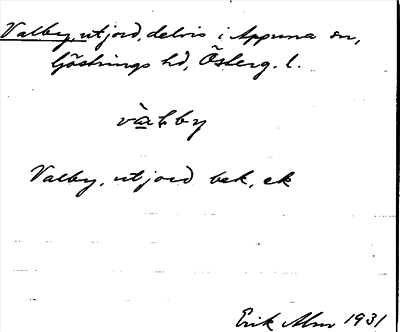 Valby, utjord, delvis i Appuna sn,
Göstrings hd, Österg. l.
vàlby
Valby, utjord bek, ek
Erik Alm 1931